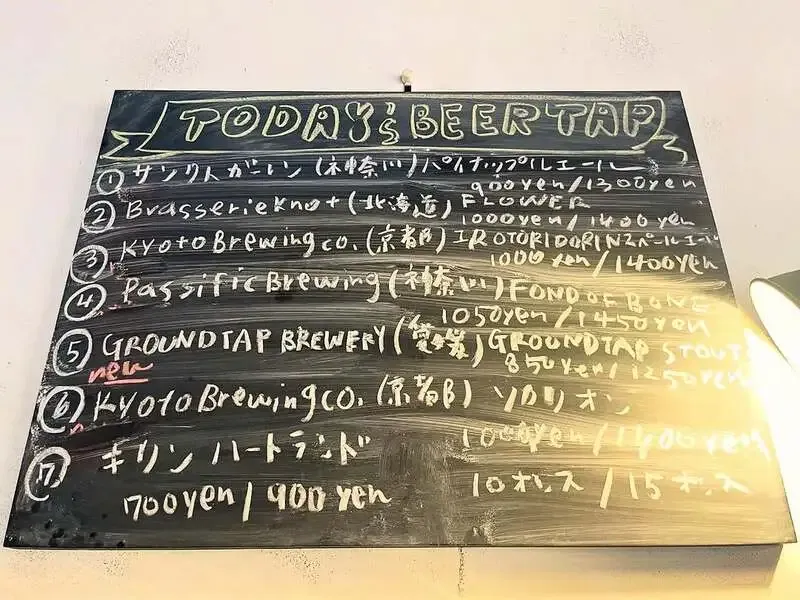 TODAY's BEER TAP
① サンクトガーレン (神奈川) パイナップルエール
900yen/1300yen
② Brasserie Knot (北海道) FLOWER
1000yen/1400yen
③ Kyoto Brewing co. (京都) IROTORIDORI NZペールエール
1000yen/1400yen
④ Passific Brewing (神奈川) FOND OF BONE
1050yen/1450yen
⑤ GROUNDTAP BREWERY (愛媛) GROUNDTAP STOUT
new 850yen/1250yen
⑥ Kyoto Brewing co. (京都)
1000yen/1400yen
⑦ キリン ハートランド
700yen/900yen 10オンス/15オンス